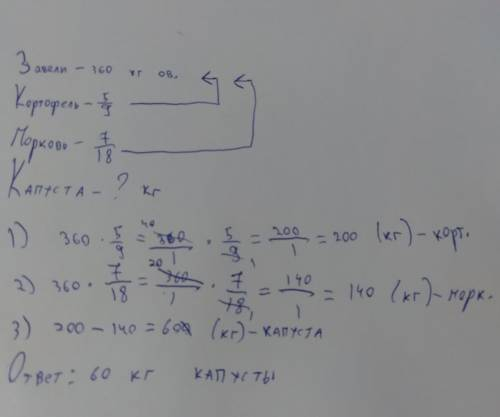 Завели - 360 кг ов.
Картофель - 5/9
Морковь - 7/18
Капуста - ? кг
1) 360 · 5/9 = 40 360/1 · 5/9 1 = 200/1 = 200 (кг) - карт.
2) 360 · 7/18 = 20 360/1 · 7/18 1 = 140/1 = 140 (кг) - морк.
3) 200 - 140 = 60 (кг) - капуста
Ответ: 60 кг капусты